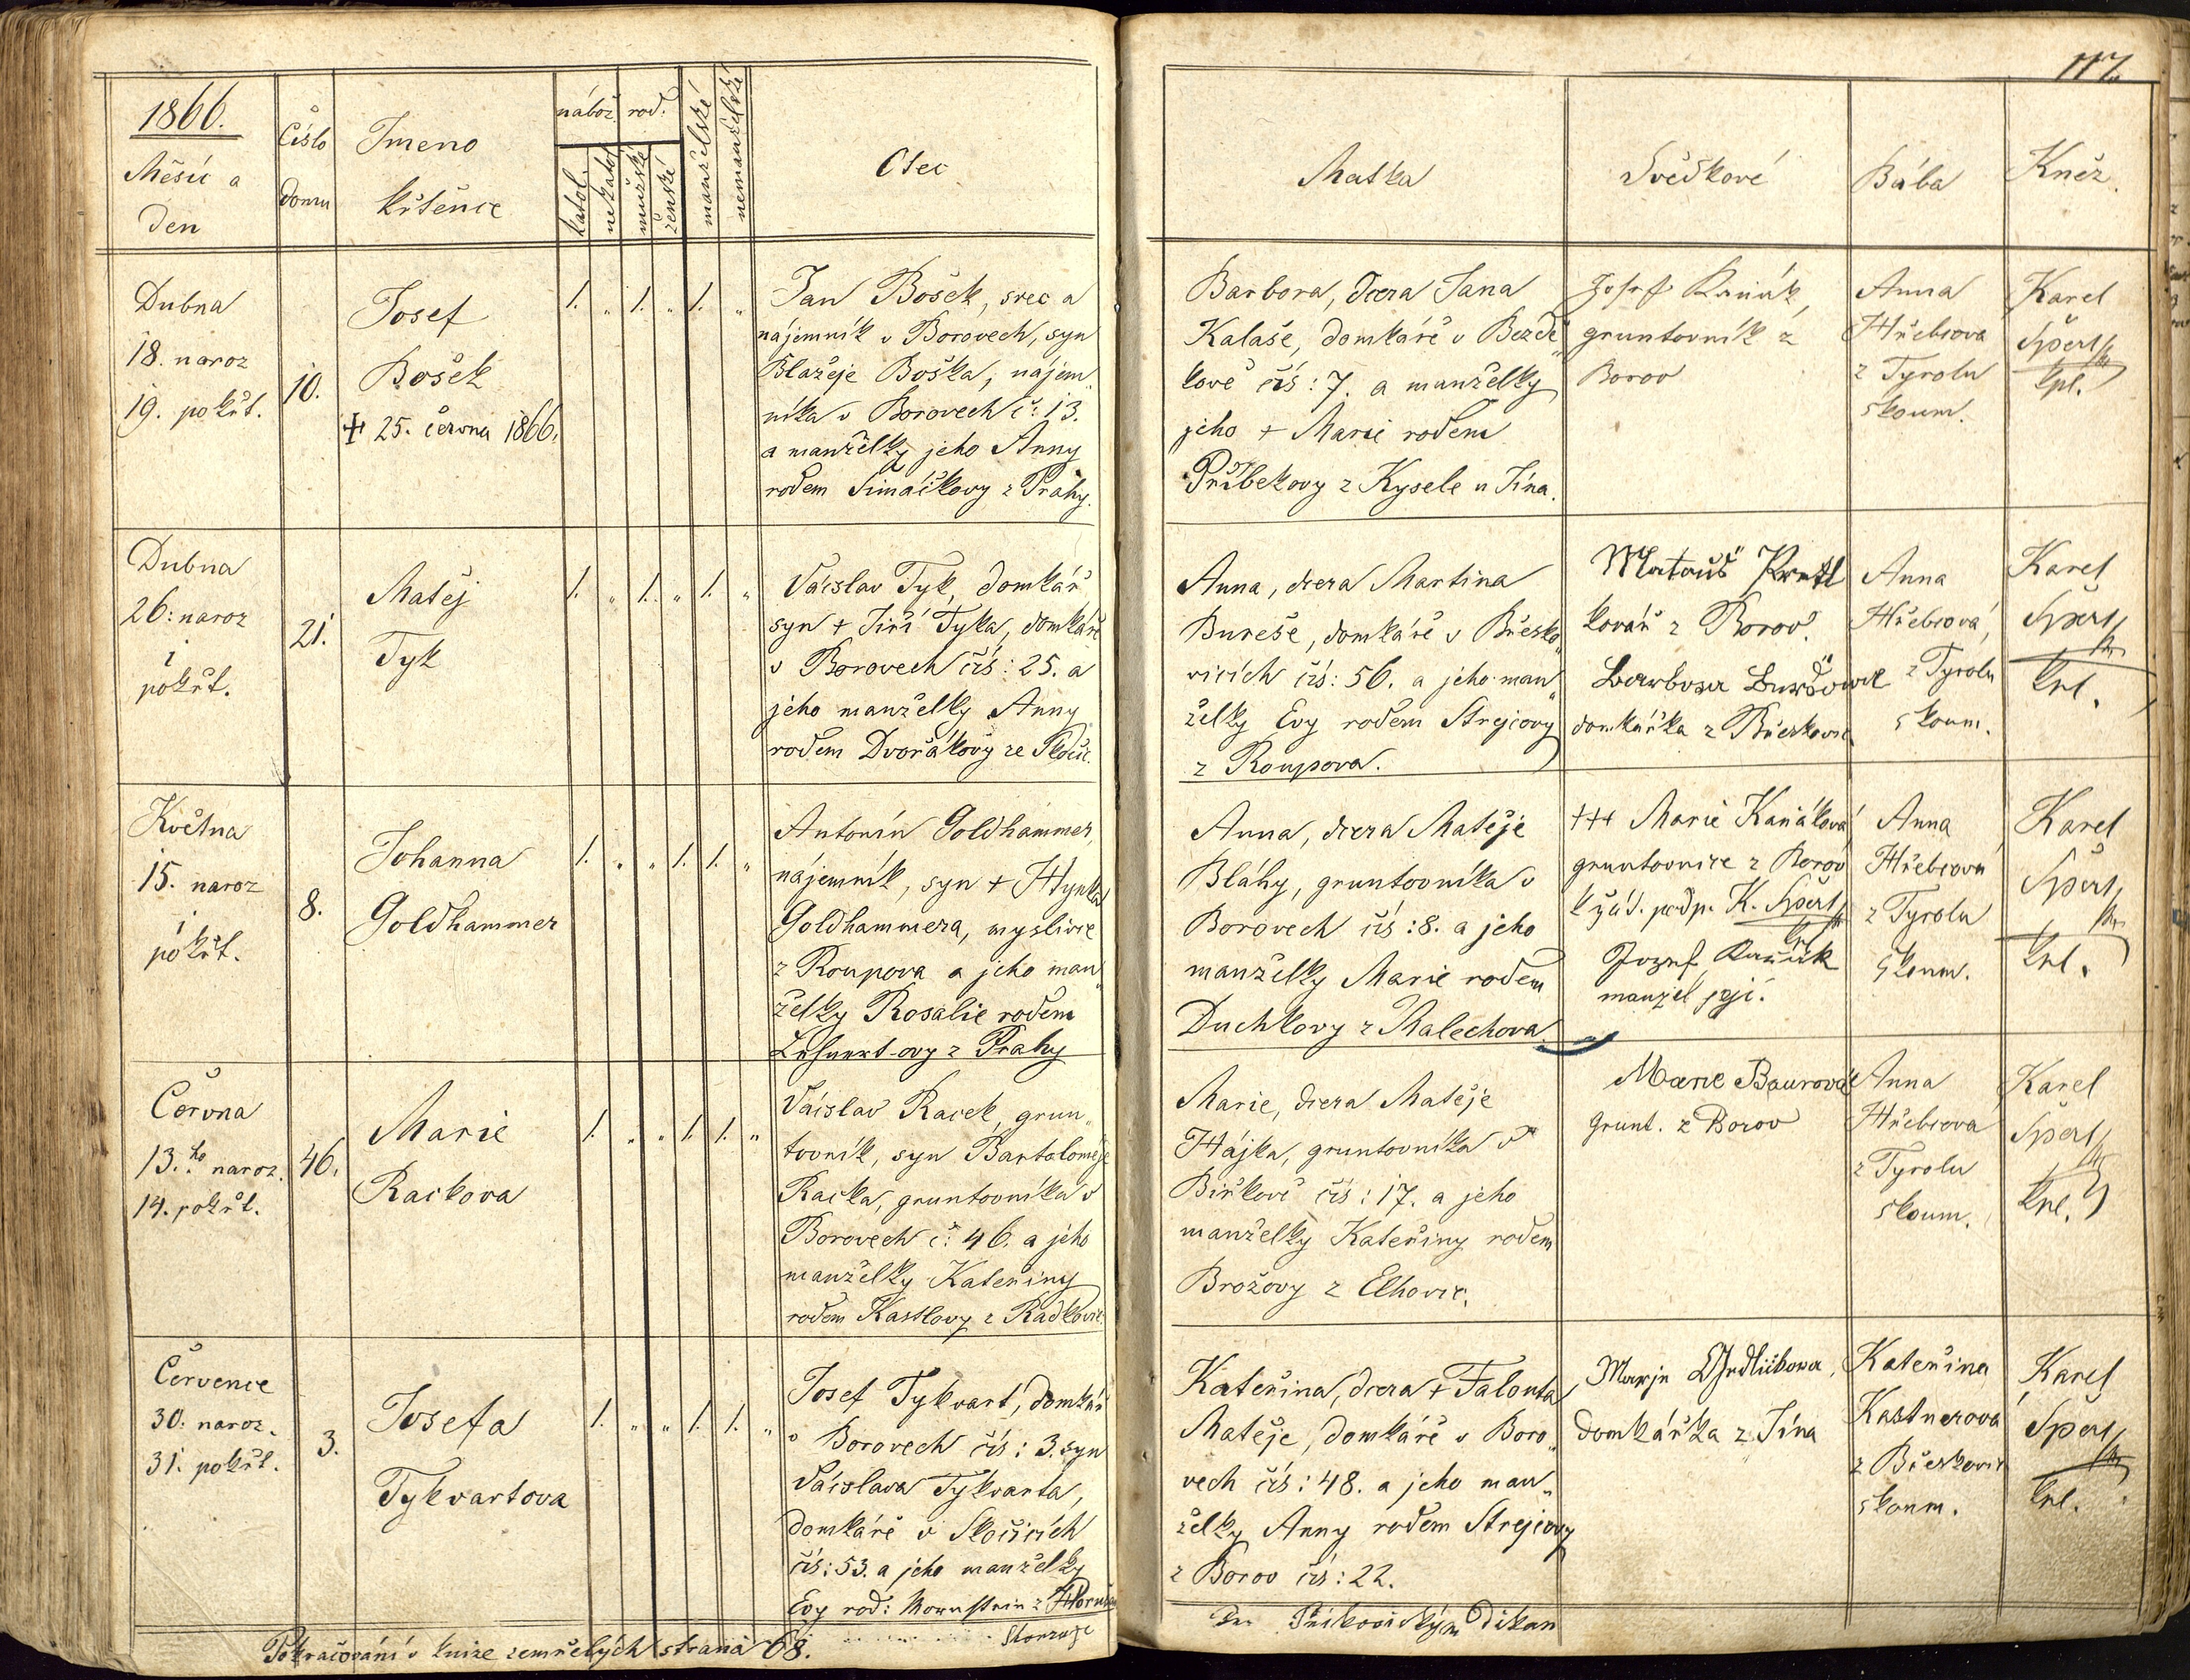 117.
1866.
Měsíc a
den
Číslo
domu
Jmeno
křtěnce
nábož.
rod.
katol.
nekatol.
mužské
ženské
manželské
nemanželské
Otec
Matka
Svědkové
Bába
Kněz.
Dubna
18. naroz
19. pokřt.
10.
Josef
Bošek
+ 25. června 1866.
1. „ 1. „ 1. „
Jan Bošek, švec a
nájemník v Borovech, syn
Blažeje Boška, nájem„
níka v Borovech č: 13.
a manželky jeho Anny
rodem Šimáčkovy z Prahy.
Barbora, dcera Jana
Kalaše, domkáře v Bezdě„
kově čís: 7. a manželky
jeho + Marie rodem
Přibekovy z Kysele u Jína.
Josef Kaňák,
gruntovník z
Borov
Anna
Hřebcova
z Tyrolu
skoum.
Karel
Špert
kpl.
Dubna
26: naroz
i
pokřt.
21.
Matěj
Tyk
1. „ 1. „ 1. „
Václav Tyk, domkář
syn + Jiří Tyka, domkáře
v Borovech čís: 25. a
jeho manželky Anny
rodem Dvořákovy ze Skočic.
Anna, dcera Martina
Bureše, domkáře v Břesko„
vicích čís: 56. a jeho man„
želky Evy rodem Strejcovy
z Roupova.
Matouš
kovář z Borov.
Barbora
domkářka z Břeskovic
Anna
Hřebcová,
z Tyrolu
skoum.
Karel
Špert
kpl.
Května
15. naroz
i
pokřt.
8.
Johanna
Goldhammer
1. „ „ 1. 1. „
Antonín Goldhammer,
nájemník, syn + Hynka
Goldhammera, myslivce
z Roupova a jeho man„
želky Rosalie rodem
z Prahy
Anna, dcera Matěje
Bláhy, gruntovníka v
Borovech čís: 8. a jeho
manželky Marie rodem
Duchkovy z Malechova
+++ Marie Kaňáková
gruntovnice z Borov
k žád. podp. K. Špert
kpl.
Jozef Kaňák
manžel její.
Anna
Hřebcová
z Tyrolu
skoum.
Karel
Špert
kpl.
Června
13.ho naroz.
14. pokřt.
46.
Marie
Rackova
1. „ „ 1. 1. „
Václav Racek, grun„
tovník, syn Bartoloměje
Racka, gruntovníka v
Borovech č: 46. a jeho
manželky Kateřiny
rodem Kastlovy z Radkovic
Marie, dcera Matěje
Hájka, gruntovníka v
Birkově čís: 17. a jeho
manželky Kateřiny rodem
Brožovy z Elhovic.
Marie Baurová
grunt. z Borov
Anna
Hřebcova
z Tyrolu
skoum.
Karel
Špert
kpl.
Července
30. naroz.
31. pokřt.
3.
Josefa
Tykvartova
1. „ „ 1. 1. „
Josef Tykvart, domkář
v Borovech čís: 3. syn
Václava Tykvarta,
domkáře v Skočicích
čís: 53. a jeho manželky
Evy rod: z
Kateřina, dcera + Falouta
Matěje, domkáře v Boro„
vech čís: 48. a jeho man„
želky Anny rodem Strejcovy
z Borov čís: 22.
Marje
domkářka z Jína
Kateřina
Kastnerová
z Břeskovic
skoum.
Karel
Špert
kpl.
Pokračování v knize zemřelých strana 68.